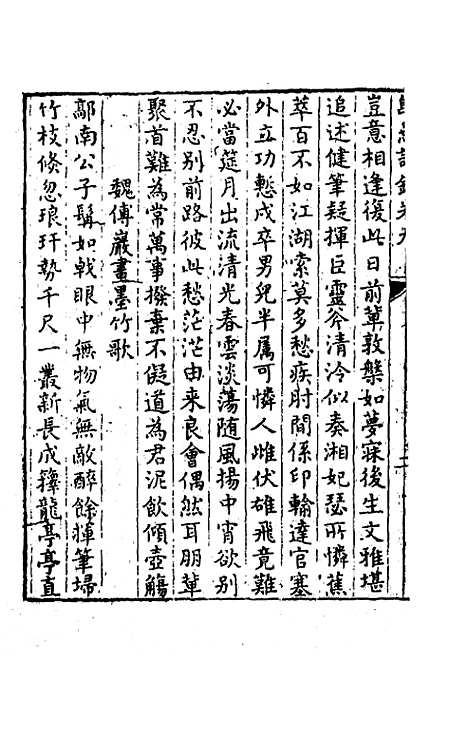 豈意相逢復此日前輩敦槃如夢寐後生文雅堪
追述健筆疑揮巨靈斧清泠似奏湘妃瑟所憐蕉
萃百不如江湖索莫多愁疾肘間係印輪達官塞
外立功慙戍卒男兒半属可憐人雌伏雄飛竟難
必當筵月出流清光春雲淡蕩随風揚中宵欲别
不忍别前路彼此愁茫茫由来良會偶然耳朋輩
聚首難為常萬事撥棄不儗道為君泥飲傾壺觴
魏傅巖畫墨竹歌
鄗南公子鬍如戟眼中無物氣無敵醉餘揮筆埽
竹枝倏忽琅玕勢千尺一叢新長成籜龍亭亭直